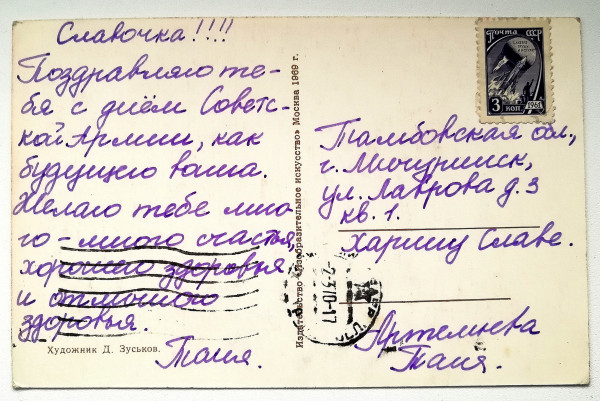 Славочка!!!!
Поздравляю те-
бя с днём Советс-
кой Армии, как
будущего воина.
Желаю тебе мно-
го - много счастья,
хорошего здоровья
и отличного
здоровья.
Таня.
Художник Д. Зуськов.
Издательство «Изобразительное искусство» Москва 1969 г.
Почта СССР
3 коп.
1961
Тамбовская обл.,
г. Мичуринск,
ул. Лаврова д. 3
кв. 1.
Харину Славе.
-2-3 70-17
Артемьева
Таня.